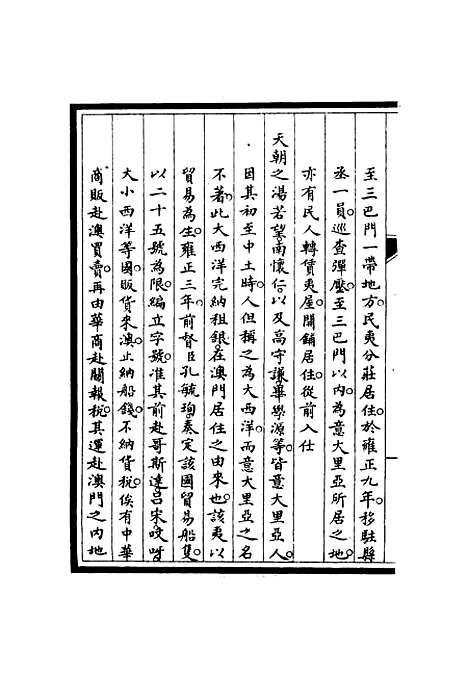 至三巴門一帶地方。民夷分莊居住。於雍正九年。移駐縣
丞一員。巡查彈壓。至三巴門以內。為意大里亞所居之地。
亦有民人轉賃夷屋。開鋪居住。從前入仕
天朝之湯若望南懷仁。以及高守謙畢學源等。皆意大里亞人。
因其初至中土。時人但稱之為大西洋。而意大里亞之名
不著。此大西洋完納租銀。在澳門居住之由來也。該夷以
貿易為生。雍正三年。前督臣孔毓珣奏定該國貿易船隻。
以二十五號為限。編立字號。准其前赴哥斯達呂宋咬𠺕
大小西洋等國。販貨來澳。止納船錢。不納貨稅。俟有中華
商販赴澳買賣。再由華商赴關報稅。其運赴澳門之內地